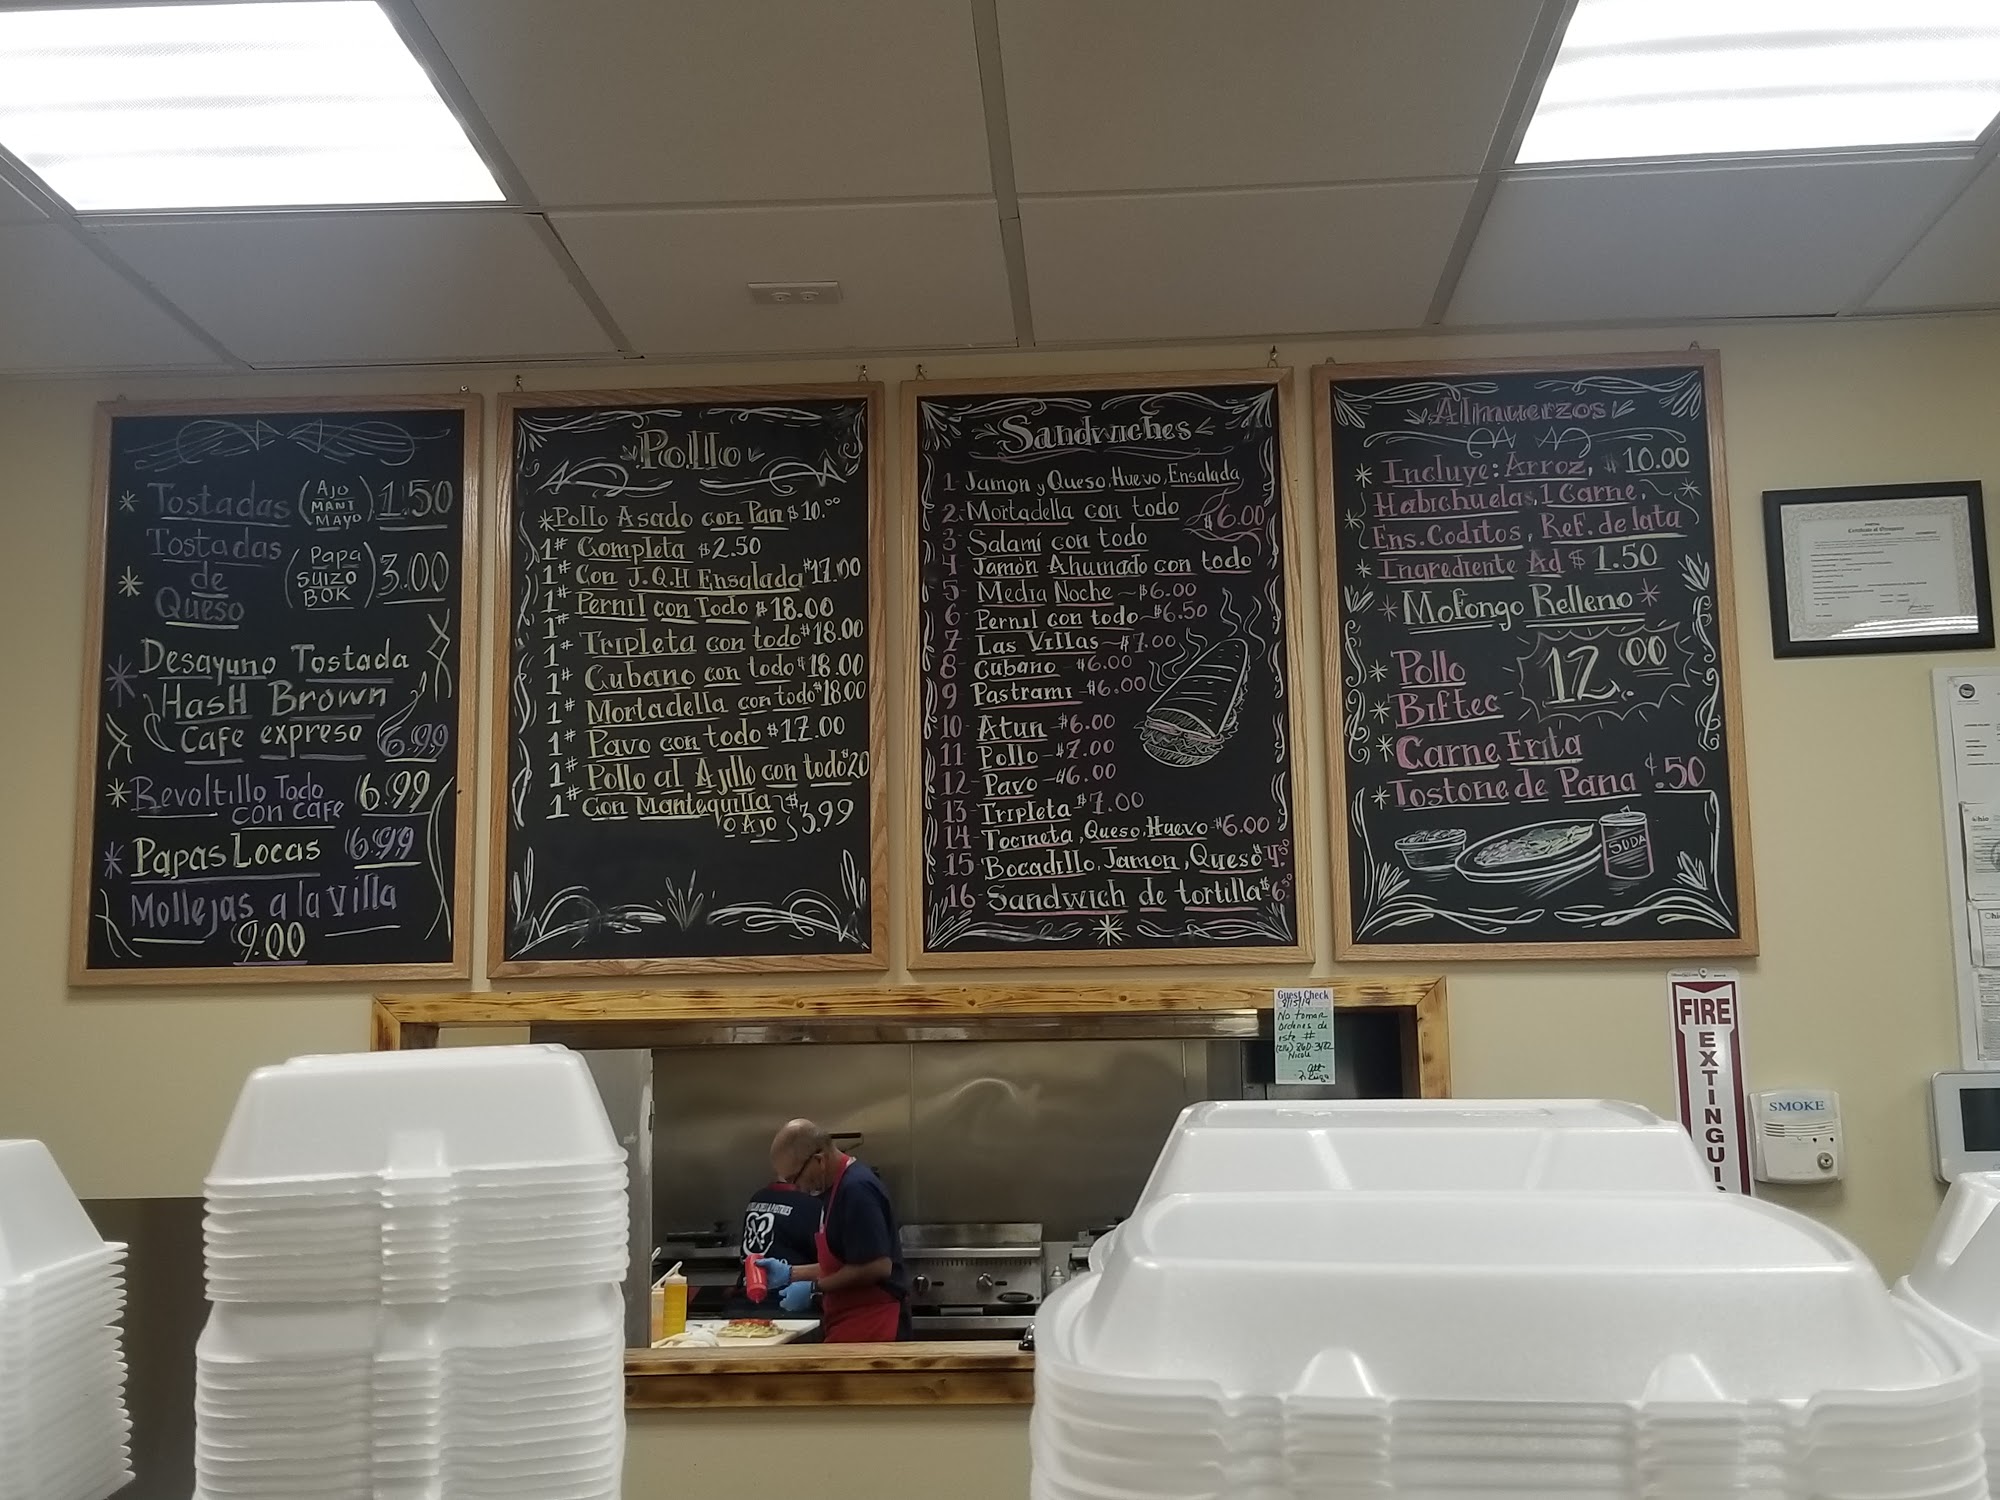 Tostadas (Ajo Mani Mayo) 1.50
Tostadas
de
Queso
(Papa
Suizo
Bok) 3.00
Desayuno Tostada
Hash Brown
Cafe expreso 6.99
Revoltillo Todo
con cafe 6.99
Papas Locas 6.99
Mollejas a la villa
9.00
Pollo
Pollo Asado con Pan $10.00
1# Completa $2.50
1# Con J.Q.H Ensalada $17.00
1# Pernil con Todo $18.00
1# Tripleta con todo $18.00
1# Cubano con todo $18.00
1# Mortadella con todo $18.00
1# Pavo con todo $17.00
1# Pollo al Ajillo con todo $20
1# Con Mantequilla
o Ajo $3.99
Sandwiches
1- Jamon y Queso, Huevo, Ensalada
2- Mortadella con todo
$6.00
3- Salami con todo
4 Jamón Ahumado con todo
5- Media Noche ~ $6.00
6- Pernil con todo ~ $6.50
7- Las Villas ~ $7.00
8- Cubano - $6.00
9- Pastrami - $6.00
10- Atun - $6.00
11- Pollo - $7.00
12- Pavo - $6.00
13- Tripleta $7.00
14- Tocineta, Queso, Huevo - $6.00
15- Bocadillo, Jamon, Queso $4.50
16- Sandwich de tortilla $6.50
Almuerzos
Incluye: Arroz, $10.00
Habichuelas, 1 Carne,
Ens. Coditos, Ref. de lata
Ingrediente Ad $1.50
Mofongo Relleno
Pollo
Biftec
12.00
Carne Frita
Tostone de Pana $.50
SUDA
Guest Check
8/15/19
No tomar
Ordenes de
este #
(216) 860-3482
Nicole
Certificate of Occupancy
FIRE
EXTINGUI
SMOKE